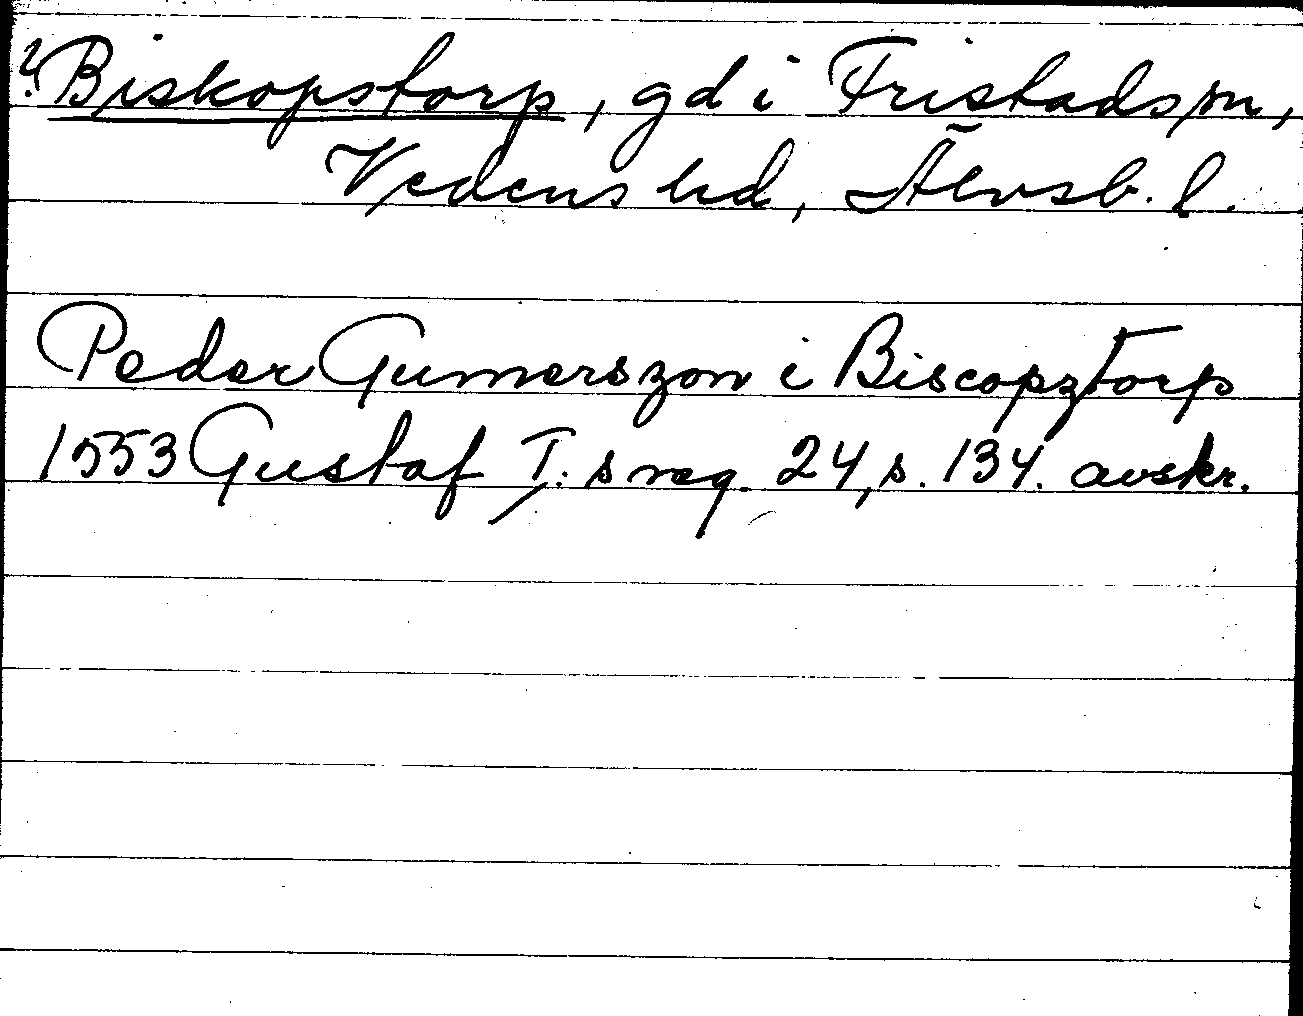 ? Biskopstorp, gd i Fristads sn,
Vedens hd, Älvsb. l.
Peder Gumerszon i Biscopztorp
1553 Gustaf I:s reg. 24, s. 134. avskr.